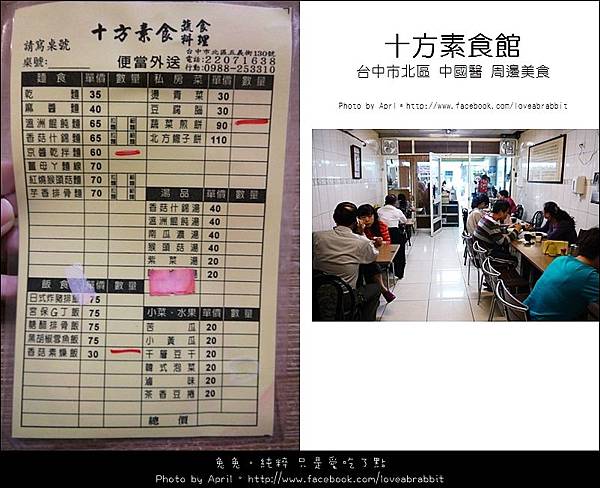 十方素食 蔬食料理
請寫桌號
桌號:
便當外送
台中市北區五義街130號
電話:22071638
行動:0988-253310
麵食 單價 數量
乾麵 35
麻醬麵 40
溫洲餛飩麵 65
香菇什錦麵 65
京醬乾拌麵 60
薑母丫麵線 70
紅燒猴頭菇麵 70
芋香排骨麵 70
飯食 單價 數量
日式炸豬排飯 75
宮保G丁飯 75
糖醋排骨飯 75
黑胡椒雪魚飯 75
香菇素燥飯 30
私房菜 單價 數量
燙青菜 30
豆腐腦 30
蔬菜煎餅 90
北方饊子餅 110
湯品 單價 數量
香菇什錦湯 40
溫洲餛飩湯 40
南瓜濃湯 40
猴頭菇湯 40
紫菜湯 20
20
小菜.水果 單價 數量
苦瓜 20
小黃瓜 20
千層豆干 20
韓式泡菜 20
滷味 20
茶香豆捲 20
總價
十方素食館
台中市北區 中國醫 周邊美食
Photo by April。http://www.facebook.com/loveabrabbit
兔兔。純粹 只是愛吃了點
Photo by April。http://www.facebook.com/loveabrabbit